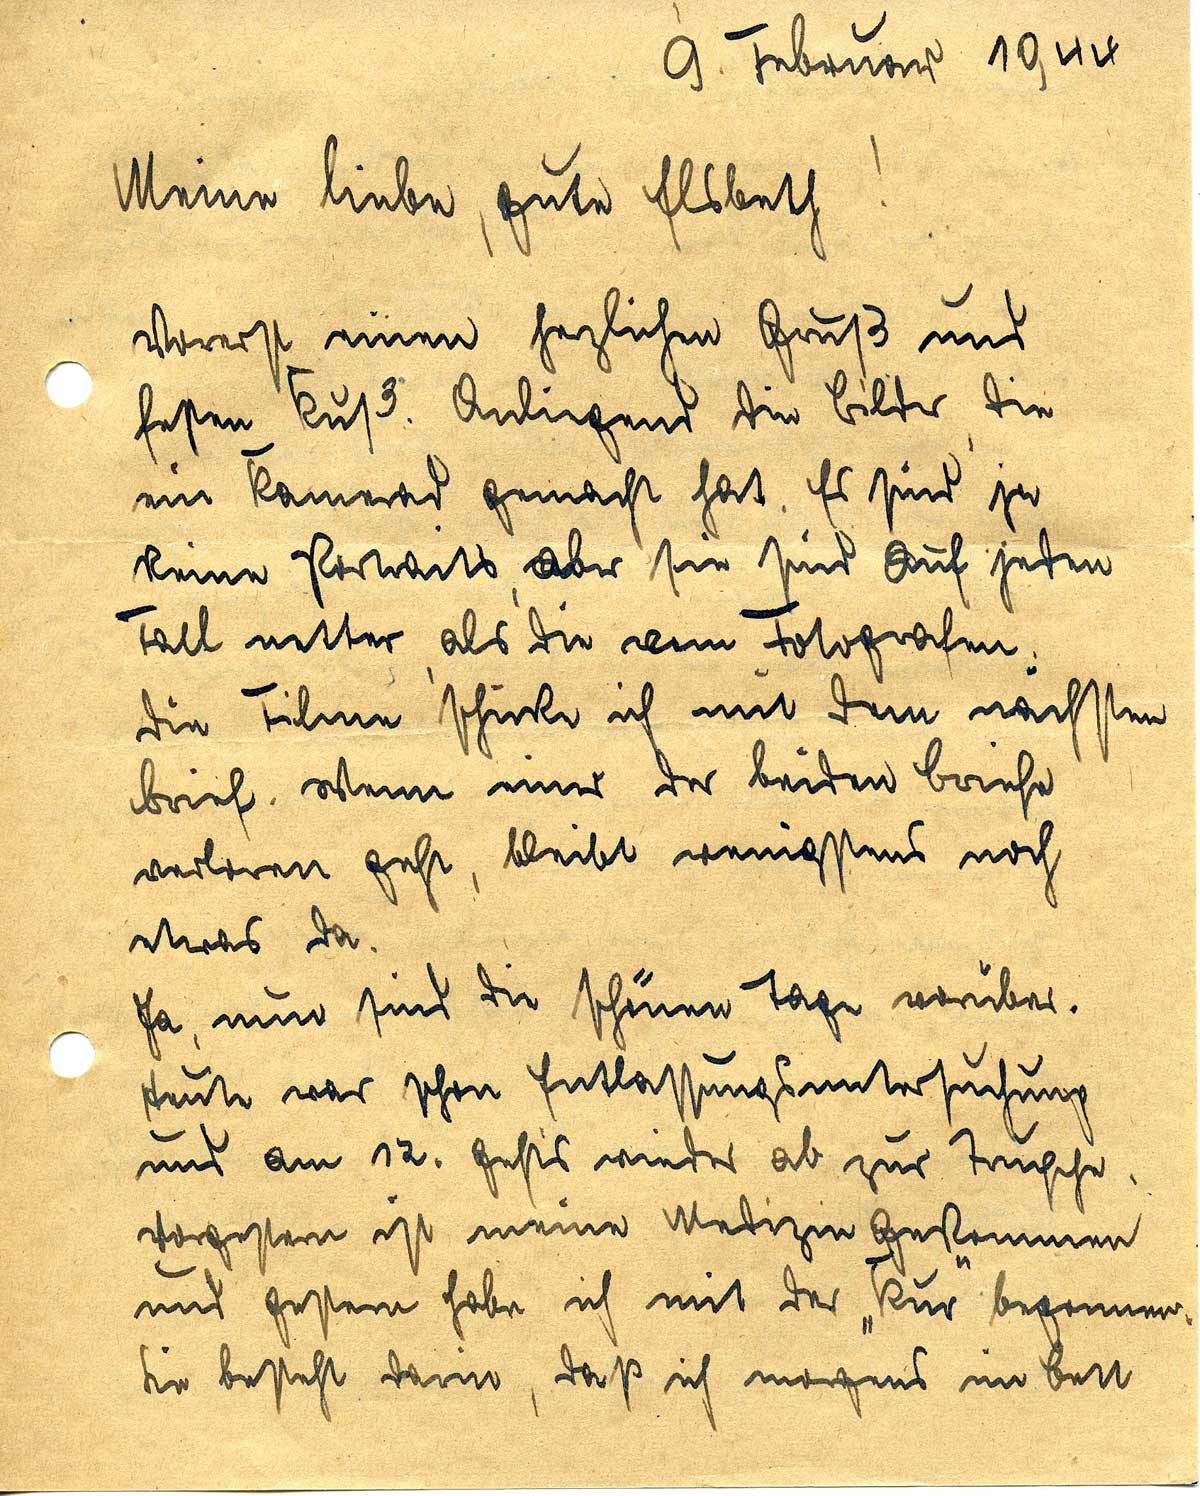 9. Februar 1944
Meine liebe, gute Elsbeth!
Vorerst einen herzlichen Gruß und
festen Kuß. Anliegend die Bilder, die
ein Kamerad gemacht hat. Es sind ja
keine Portraits, aber sie sind auf jeden
Fall netter, als die vom Fotografen.
Die Filme schicke ich mit dem nächsten
Brief. Wenn einer der beiden Briefe
verloren geht, bleibt wenigstens noch
etwas da.
Ja, nun sind die schönen Tage vorüber.
Heute war schon Entlassungsuntersuchung
und am 12. gehts wieder ab zur Truppe.
Vorgestern ist meine Medizin gekommen
und gestern habe ich mit der „Kur" begonnen.
Sie besteht darin, daß ich morgens im Bett